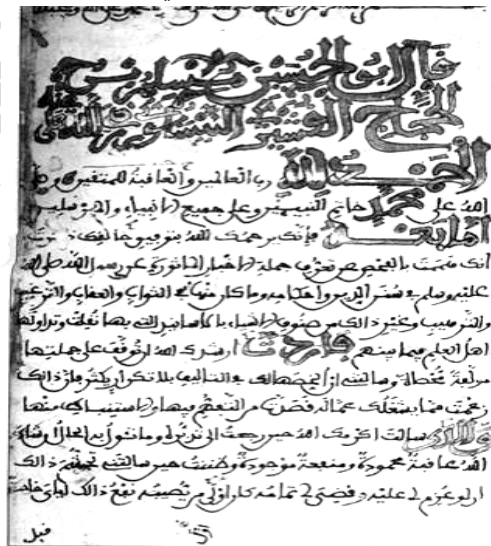 قال ابو الحسين مسلم بن
الحجاج القشيري النيسابوري
الحمد لله رب العالمين والعاقبة للمتقين وصلى
الله على محمد خاتم النبيين وعلى جميع الانبياء والمرسلين
اما بعد فإنك يرحمك الله بتوفيق خالقك ذكرت
أنك هممت بالفحص عن تعرف جملة الاخبار الماثورة عن رسول الله صلى الله
عليه وسلم في سنن الدين واحكامه وما كان منها في الثواب والعقاب والترغيب
والترهيب وغير ذالك من صنوف الاشياء بالاسانيد التي بها نقلت وتداولها
اهل العلم فيما بينهم فاردت ارشدك الله ان توقف على جملتها
مولفة محصاة وسالتني ان الخصها لك في التاليف بلا تكرار يكثر فإن ذالك
زعمت مما يشغلك عما له قصدت من التفهم فيها والاستنباط منها
وللذي سالت اكرمك الله حين رجعت الى تدبره وما تئول به الحال ان شاء
الله عاقبة محمودة ومنفعة موجودة وظننت حين سالتني تجشم ذالك
ان لو عزم لي عليه وقضي لي تمامه كان اول من يصيبه نفع ذالك اياي خاصة
قبل